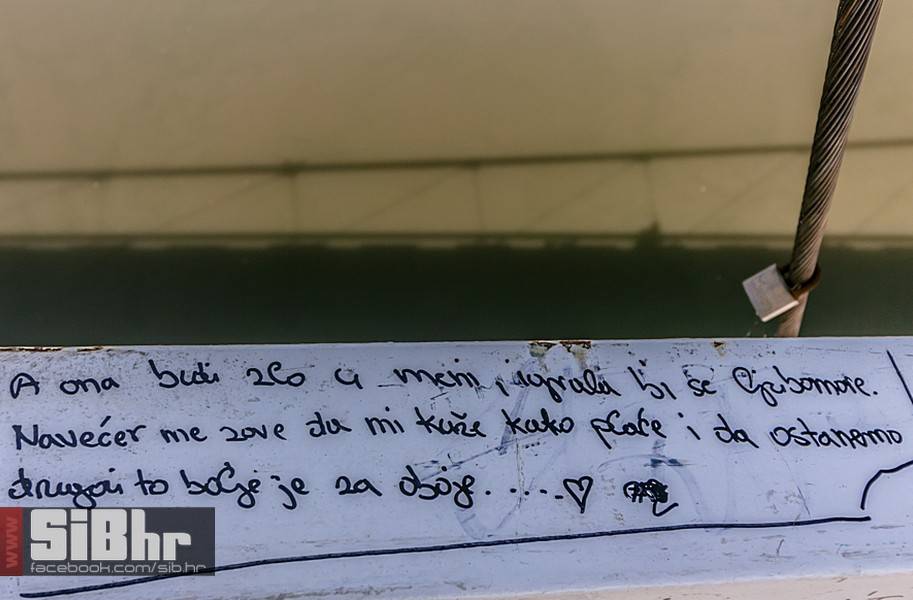 A ona budi zlo u meni, igrala bi se ljubomore.
Navečer me zove da mi kaže kako plače i da ostanemo
drugovi to bolje je za oboje......♡
www SiBhr
facebook.com/sib.hr